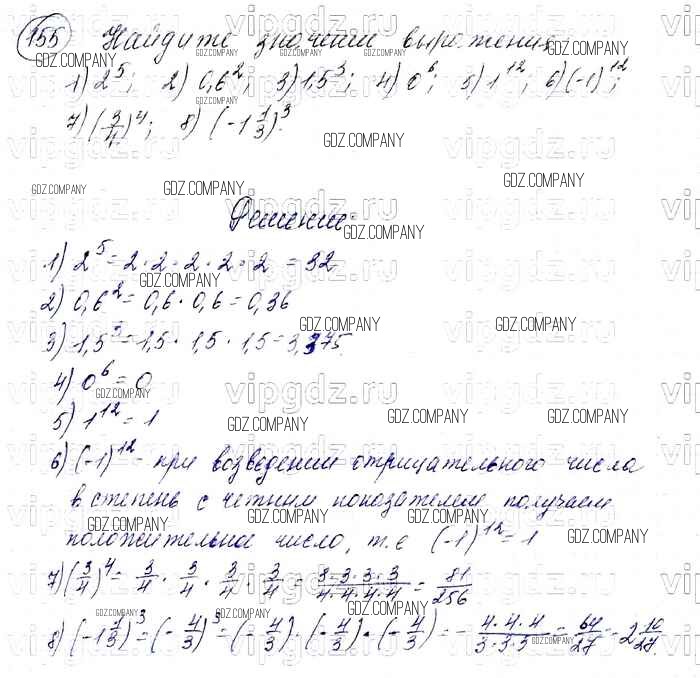 155 Найдите значении выражения:
1) 2⁵; 2) 0,6²; 3) 1,5³; 4) 0⁶; 5) 1¹²; 6) (-1)¹²;
7) (3/4)⁴; 8) (-1 1/3)³.
Решение:
1) 2⁵ = 2·2·2·2·2 = 32
2) 0,6² = 0,6·0,6 = 0,36
3) 1,5³ = 1,5·1,5·1,5 = 3,375.
4) 0⁶ = 0
5) 1¹² = 1
6) (-1)¹² - при возведении отрицательного числа
в степень с четним показателем получаем
положительное число, т.е (-1)¹² = 1
7) (3/4)⁴ = 3/4 · 3/4 · 3/4 · 3/4 = 3·3·3·3/4·4·4·4 = 81/256
8) (-1 1/3)³ = (-4/3)³ = (-4/3)·(-4/3)·(-4/3) = -4·4·4/3·3·3 = 64/27 = -2 10/27.
vipgdz.ru
GDZ.COMPANY